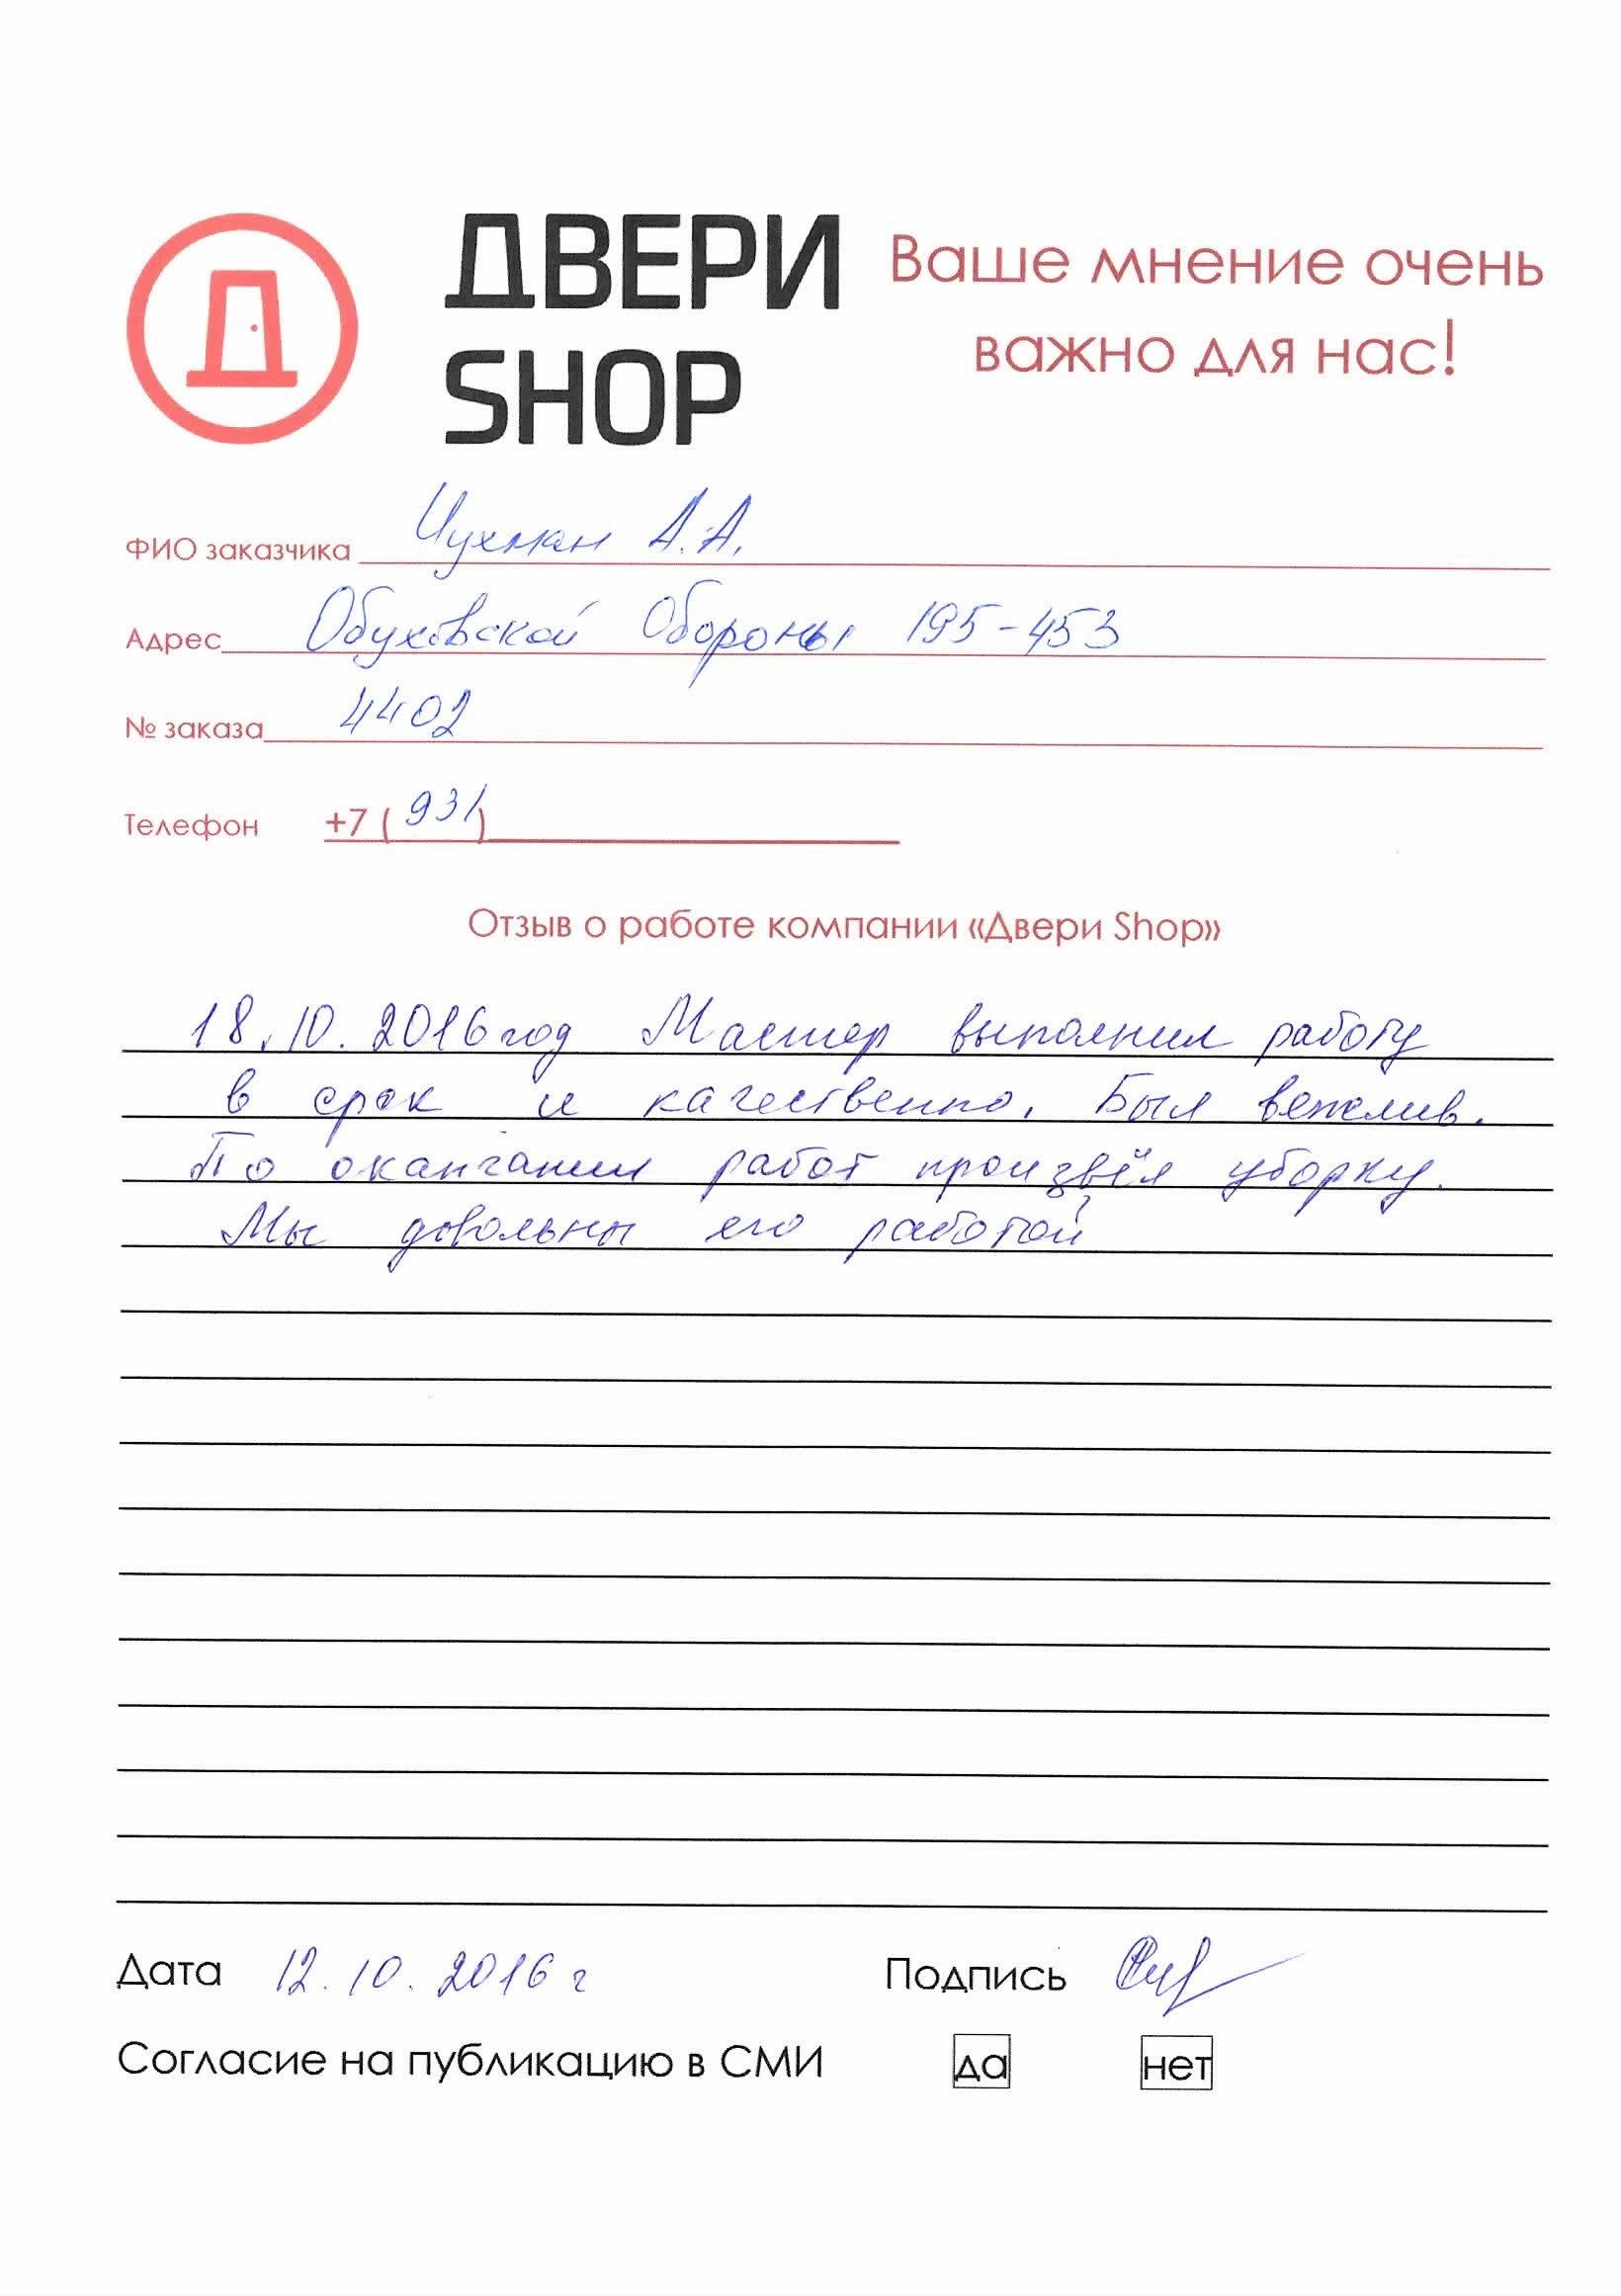 ДВЕРИ
SHOP
Ваше мнение очень
важно для нас!
ФИО заказчика Чухман А.А.
Адрес Обуховской Обороны 195-453
№ заказа 4402
Телефон +7 (931)
Отзыв о работе компании «Двери Shop»
18.10.2016 год Мастер выполнил работу
в срок и качественно. Был вежлив.
По оканчании работ произвёл уборку.
Мы довольны его работой
Дата 12.10.2016 г Подпись
Согласие на публикацию в СМИ да нет